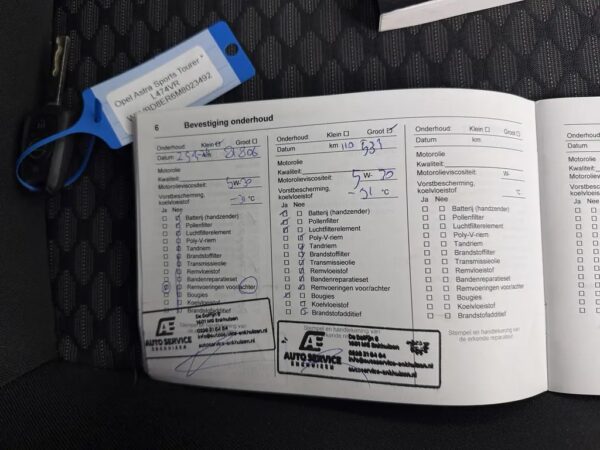 Opel Astra Sports Tourer *
L474VR
6 Bevestiging onderhoud
Onderhoud: Klein ☑ Groot ☐
Datum km 81806
Motorolie
Kwaliteit:
Motorolieviscositeit: 5W-30
Vorstbescherming,
koelvloeistof °C
Ja Nee
Batterij (handzender)
Pollenfilter
Luchtfilterelement
Poly-V-riem
Tandriem
Brandstoffilter
Transmissieolie
Remvloeistof
Bandenreparatieset
Remvoeringen voor/achter
Bougies
Koelvloeistof
Brandstofadditief
AE
AUTO SERVICE
ENKHUIZEN
De Dolfijn 6
1601 ME Enkhuizen
0228 31 64 84
info@autoservice-enkhuizen.nl
autoservice-enkhuizen.nl
Onderhoud: Klein ☐ Groot ☑
Datum km 110 531
Motorolie
Kwaliteit:
Motorolieviscositeit: 5 W- 30
Vorstbescherming,
koelvloeistof -31 °C
Ja Nee
Batterij (handzender)
Pollenfilter
Luchtfilterelement
Poly-V-riem
Tandriem
Brandstoffilter
Transmissieolie
Remvloeistof
Bandenreparatieset
Remvoeringen voor/achter
Bougies
Koelvloeistof
Brandstofadditief
Stempel en handtekening van
AE
AUTO SERVICE
ENKHUIZEN
De Dolfijn 6
1601 ME Enkhuizen
0228 31 64 84
info@autoservice-enkhuizen.nl
autoservice-enkhuizen.nl
Onderhoud: Klein ☐ Groot ☐
Datum km
Motorolie
Kwaliteit:
Motorolieviscositeit: W-
Vorstbescherming,
koelvloeistof °C
Ja Nee
Batterij (handzender)
Pollenfilter
Luchtfilterelement
Poly-V-riem
Tandriem
Brandstoffilter
Transmissieolie
Remvloeistof
Bandenreparatieset
Remvoeringen voor/achter
Bougies
Koelvloeistof
Brandstofadditief
Stempel en handtekening van
de erkende reparateur
Onderhoud:
Datum
Motorolie
Kwaliteit:
Motorolieviscositeit
Vorstbescherming,
koelvloeistof
Ja Nee